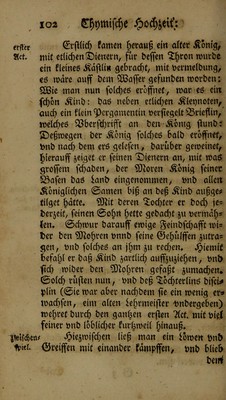 102 Chymische Hochzeit:
erster Act.
Erstlich kamen herauß ein alter König,
mit etlichen Dienern, für dessen Thron wurde
ein kleines Kästlin gebracht, mit vermeldung,
es wäre auff dem Wasser gefunden worden:
Wie man nun solches eröffnet, war es ein
schön Kind: das neben etlichen Kleynoten,
auch ein klein Pergamentin versigelt Brieflin,
welches Uberschrifft an den König stund:
Deßwegen der König solches bald eröffnet,
und nach dem ers gelesen, darüber geweinet,
hierauff zeiget er seinen Dienern an, mit was
grossem schaden, der Moren König seiner
Basin das Land eingenommen, und allen
Königlichen Samen biß an deß Kind außge-
tilget hätte. Mit deren Tochter er doch je-
derzeit, seinen Sohn hette gedacht zu vermäh-
len. Schwur darauff ewige Feindschafft wi-
der den Mohren vnnd seine Gehülffen zutra-
gen, und solches an jhm zu rechen. Hiemit
befahl er daß Kind zartlich auffzuziehen, und
sich wider den Mohren gefaßt zumachen.
Solch rüsten nun, und deß Töchterlins disci-
plin (Sie war aber nachdem sie ein wenig er-
wachsen, eim alten Lehrmeister vndergeben)
wehret durch den gantzen ersten Act. mit viel
feiner und löblicher kurtzweil hinauß.
zwischen-
spiel.
Hiezwischen ließ man ein Löwen und
Greiffen mit einander kämpffen, und blieb
dem